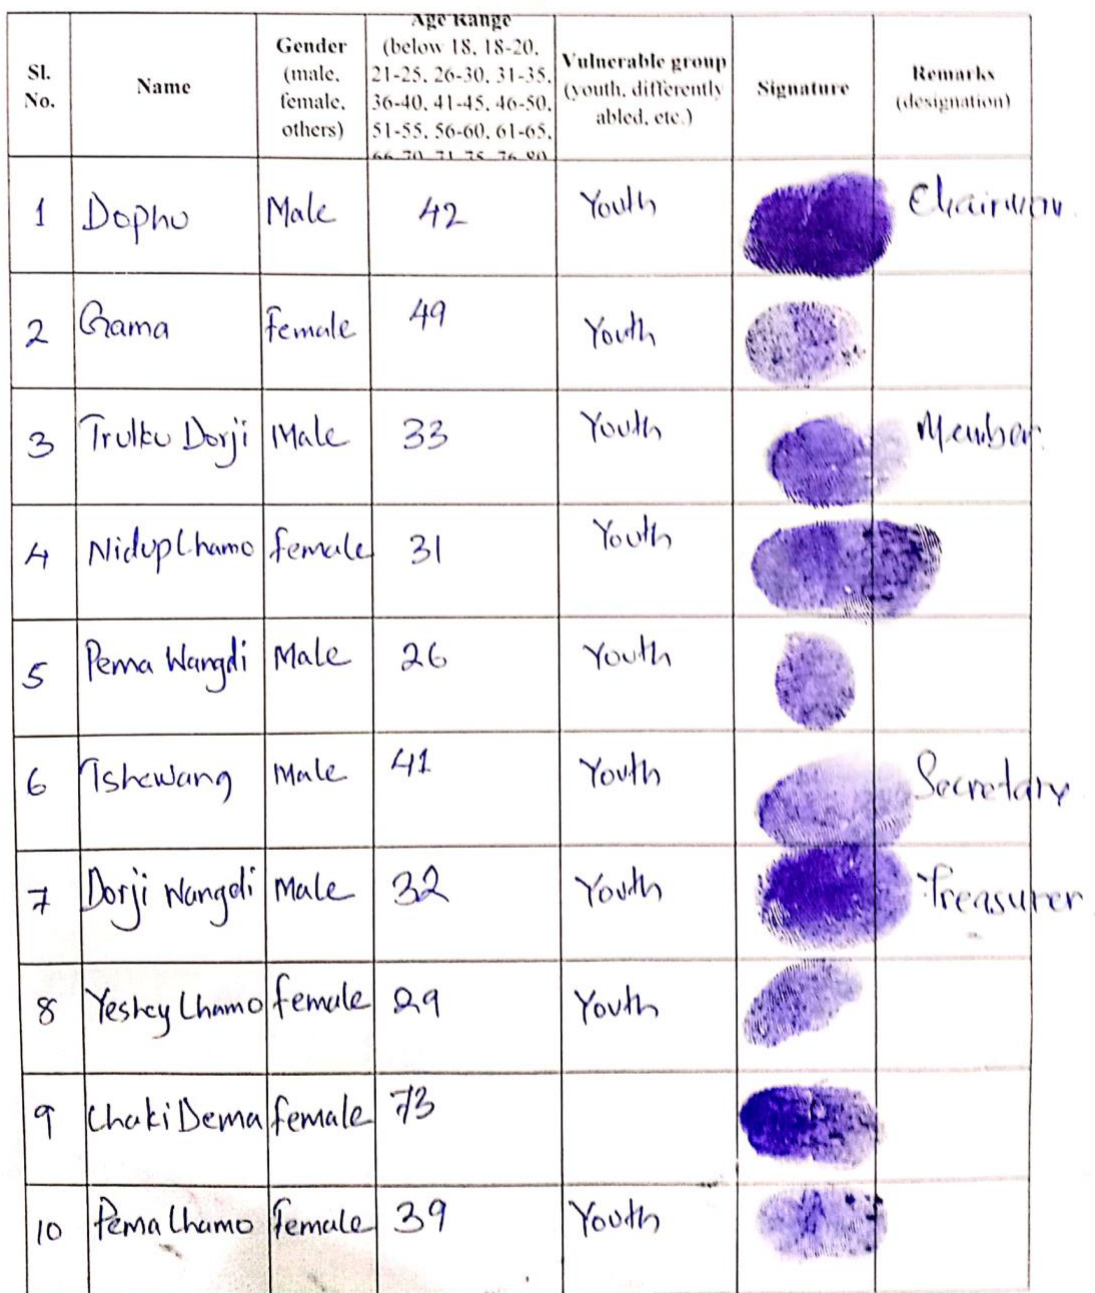 Sl. No. | Name | Gender (male, female, others) | Age Range (below 18, 18-20, 21-25, 26-30, 31-35, 36-40, 41-45, 46-50, 51-55, 56-60, 61-65, 66-70, 71-75, 76-80 | Vulnerable group (youth, differently abled, etc.) | Signature | Remarks (designation)
1 | Dopho | Male | 42 | Youth | | Chairman
2 | Gama | Female | 49 | Youth
3 | Trulku Dorji | Male | 33 | Youth | | Member
4 | Nidup Lhamo | female | 31 | Youth
5 | Pema Wangdi | Male | 26 | Youth
6 | Tshewang | Male | 41 | Youth | | Secretary
7 | Dorji Wangdi | Male | 32 | Youth | | Treasurer
8 | Yeshey Lhamo | female | 29 | Youth
9 | Chaki Dema | female | 73
10 | Pema Lhamo | Female | 39 | Youth